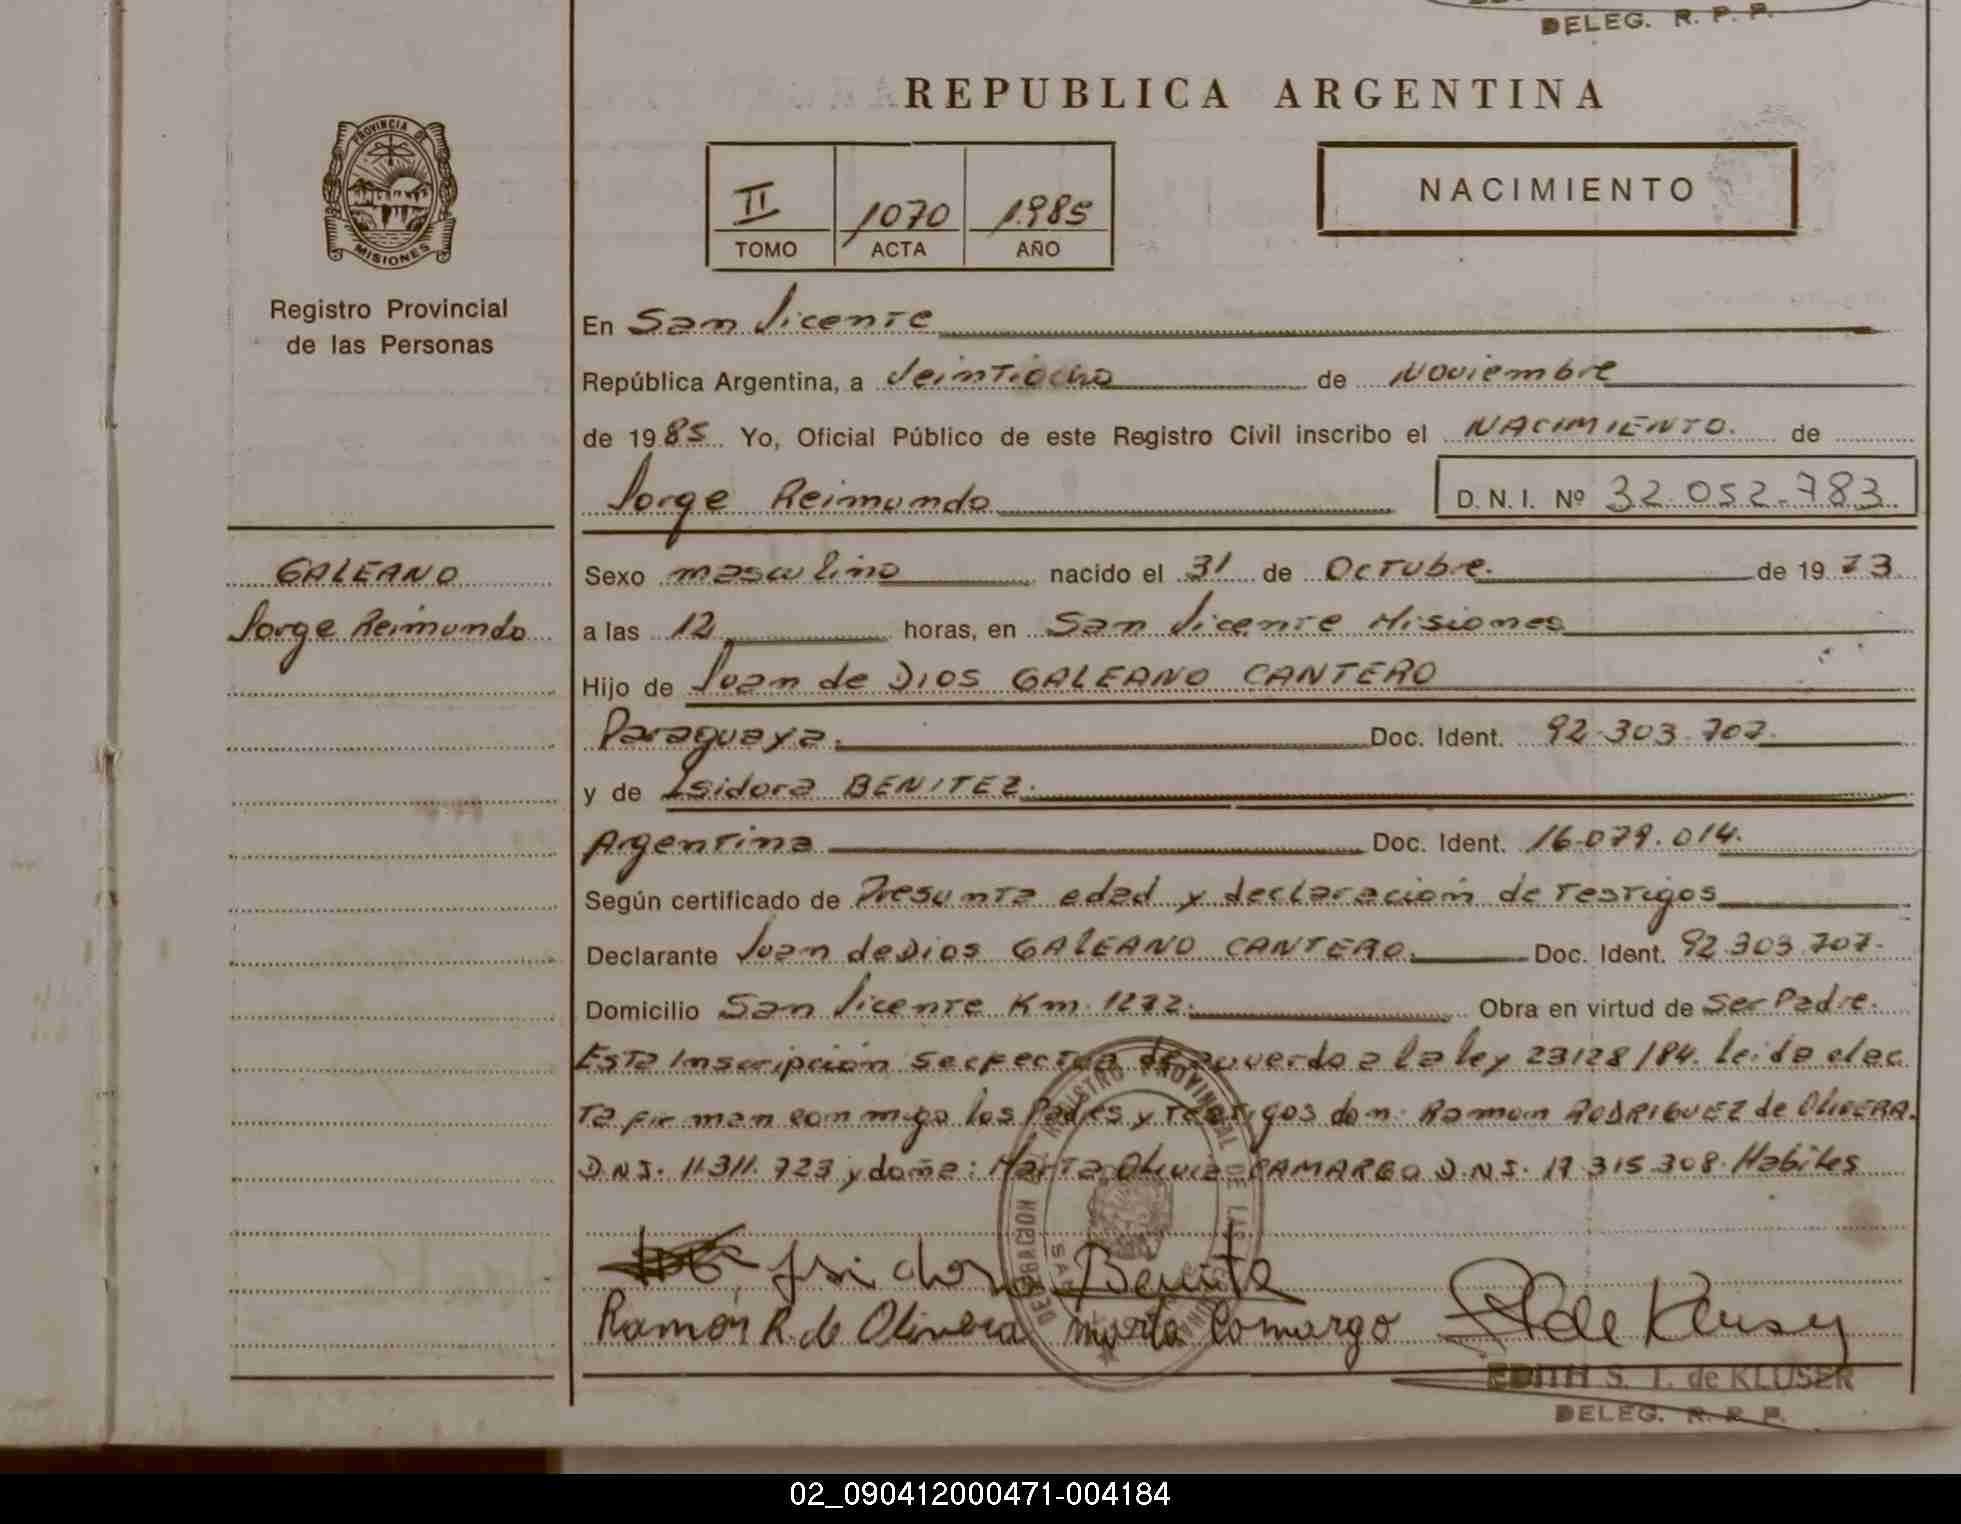 DELEG. R. P. P.
REPUBLICA ARGENTINA
PROVINCIA DE
MISIONES
II 1070 1985
TOMO ACTA AÑO
NACIMIENTO
Registro Provincial
de las Personas
En San Vicente
República Argentina, a Veintiocho de Noviembre
de 1985 Yo, Oficial Público de este Registro Civil inscribo el NACIMIENTO. de
Jorge Reimundo
D. N. I. Nº 32.052.783
GALEANO
Jorge Reimundo
Sexo masculino nacido el 31 de Octubre. de 1973
a las 12 horas, en San Vicente Misiones
Hijo de Juan de DIOS GALEANO CANTERO
Paraguaya. Doc. Ident. 92.303.707.
y de Isidora BENITEZ.
Argentina Doc. Ident. 16.079.014.
Según certificado de Presunta edad y declaración de testigos
Declarante Juan de Dios GALEANO CANTERO. Doc. Ident. 92.303.707.
Domicilio San Vicente Km. 1272. Obra en virtud de Ser Padre.
Esta Inscripción se efectua de acuerdo a la ley 23128/84. Leida el ac
ta firman conmigo los Padres y testigos don: Ramon RODRIGUEZ de OLIVERA.
D.N.I. 11.311.723 y doña: Marta Olivia CAMARGO D.N.I. 17.315.308. Habiles
Isidora Benite
Ramón R. de Olivera Marta Camargo
REGISTRO PROVINCIAL DE LAS
EDITH S. T. de KLUSER
DELEG. R. P. P.
02_090412000471-004184